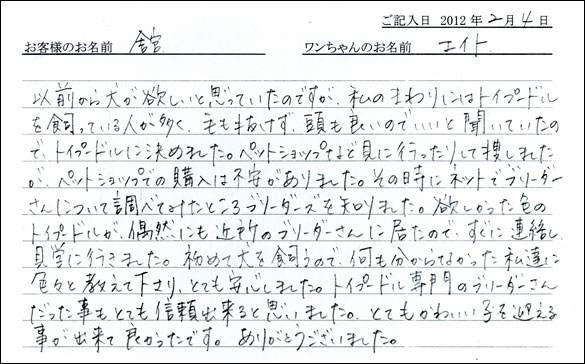 ご記入日 2012年2月4日
お客様のお名前 ワンちゃんのお名前 エイト
以前から犬が欲しいと思っていたのですが、私のまわりにはトイプードル
を飼っている人が多く、毛も抜けず、頭も良いのでいいと聞いていたの
で、トイプードルに決めました。ペットショップなど見に行ったりして捜しました
が、ペットショップでの購入は不安がありました。その時にネットでブリーダー
さんについて調べてみたところブリーダーズを知りました。欲しかった色の
トイプードルが、偶然にも近所のブリーダーさんに居たので、すぐに連絡し、
見学に行きました。初めて犬を飼うので、何も分からなかった私達に
色々と教えて下さり、とても安心しました。トイプードル専門のブリーダーさん
だった事もとても信頼出来ると思いました。とてもかわいい子を迎える
事が出来て良かったです。ありがとうございました。